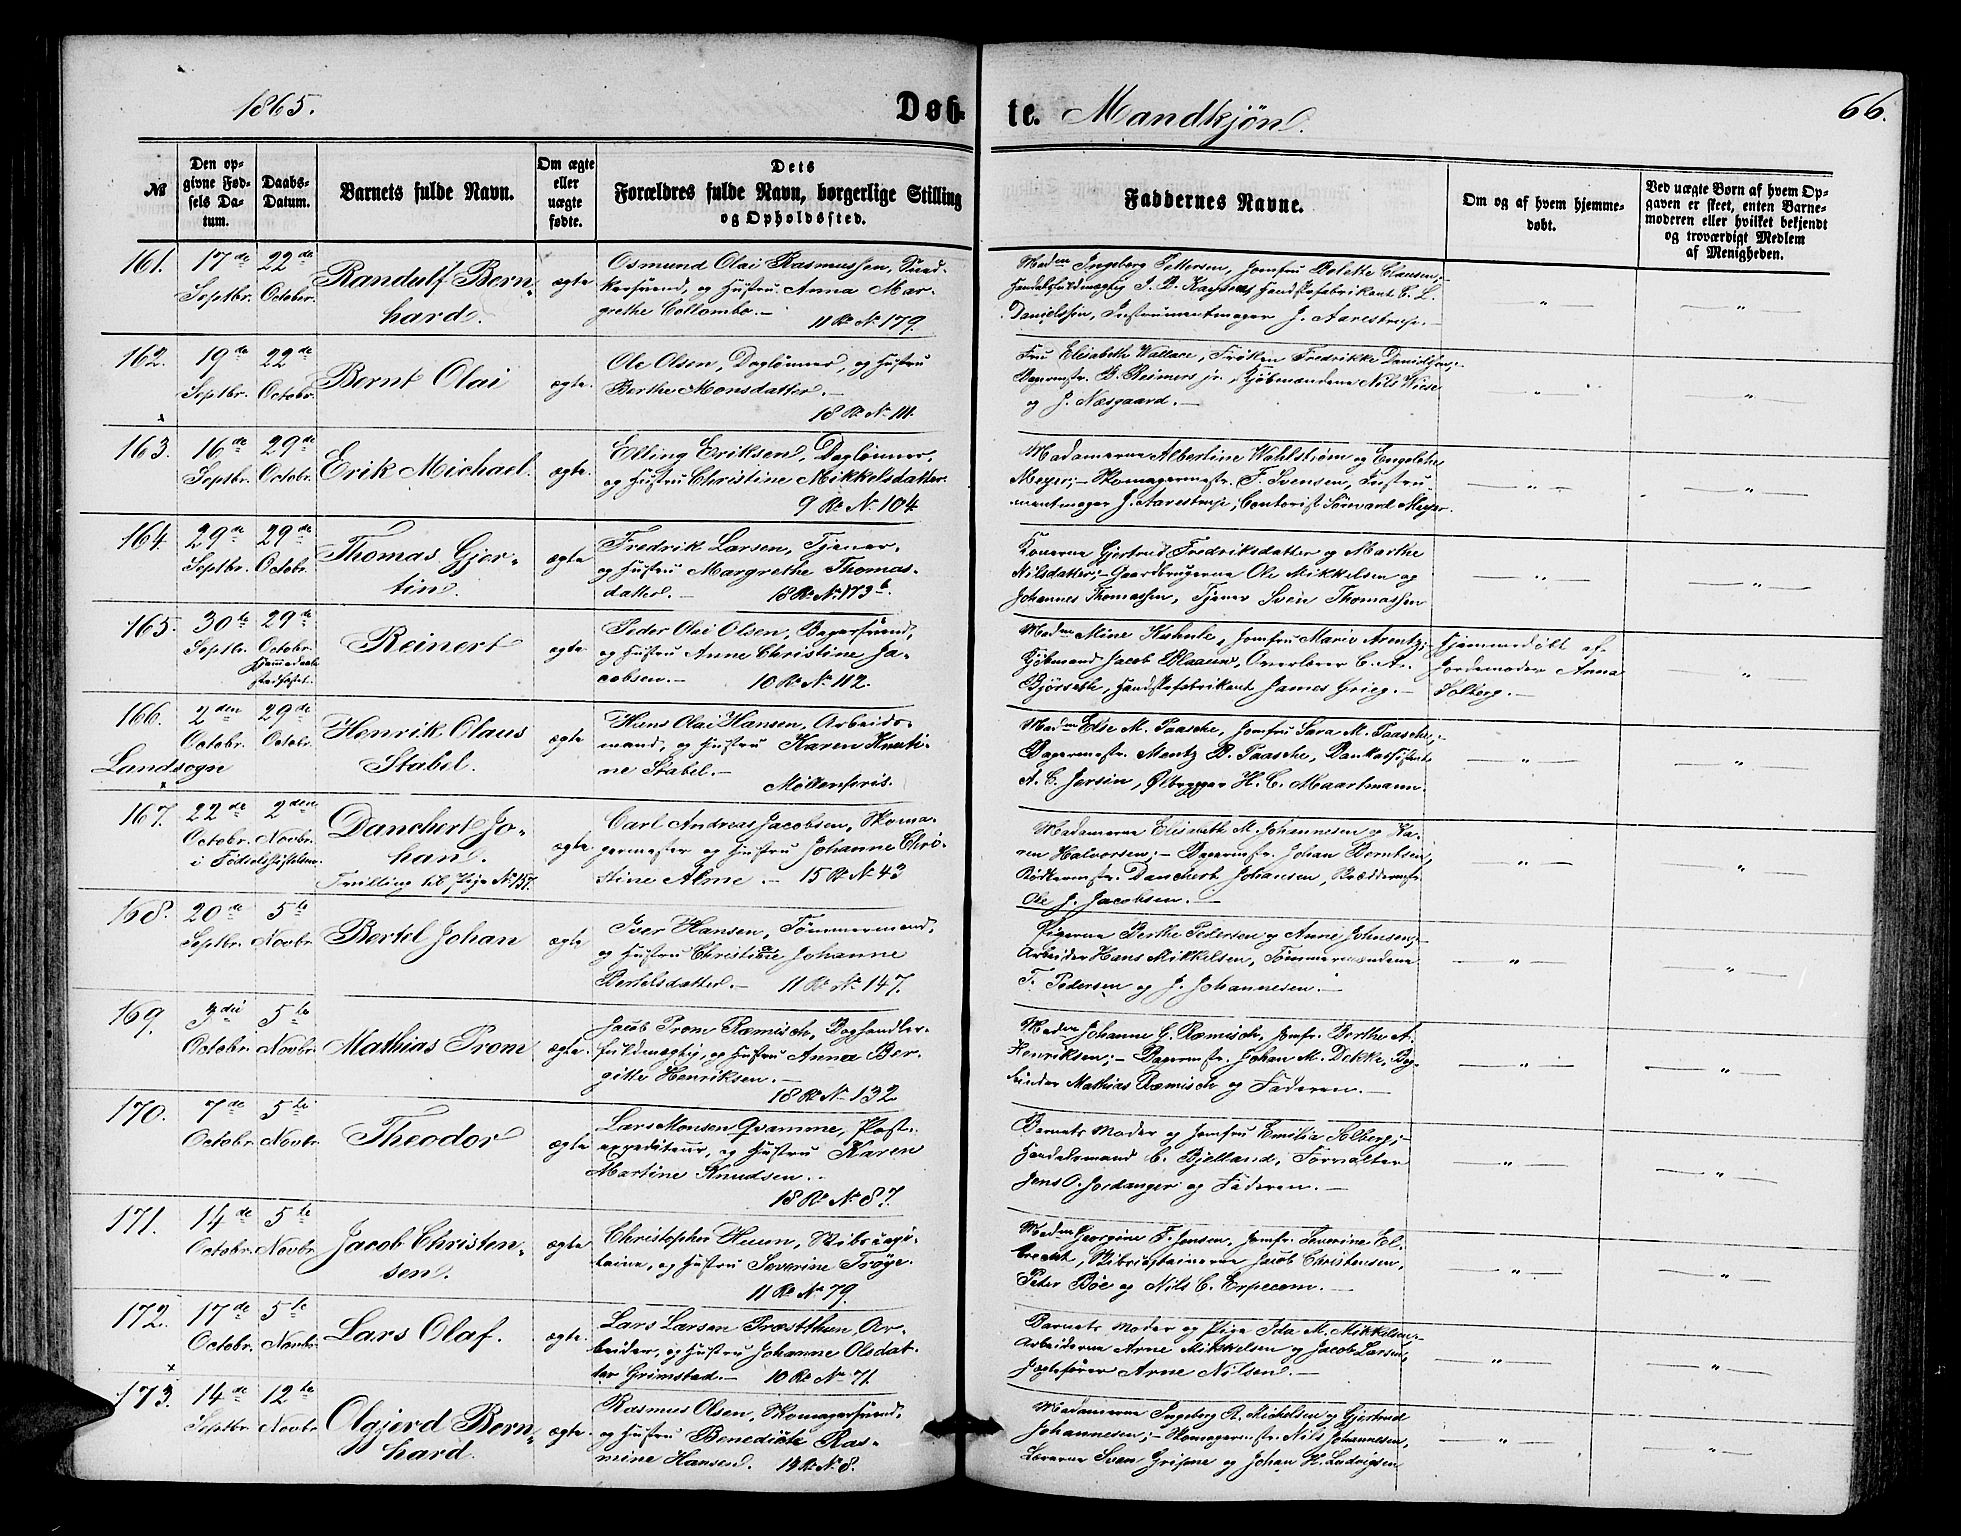 1865.
Døb-
te. Mandkjøn.
66.
№
Den op-
givne Fød-
sels Da-
tum.
Daabs-
Datum.
Barnets fulde Navn.
Om ægte
eller
uægte
fødte.
Dets
Forældres fulde Navn, borgerlige Stilling
og Opholdssted.
Faddernes Navne.
Om og af hvem hjemme-
døbt.
Ved uægte Børn af hvem Op-
gaven er skeet, enten Barne-
moderen eller hvilket bekjendt
og troværdigt Medlem
af Menigheden.
161.
17de
Septbr.
22de
Octobr.
Randulf Bern-
hard.
ægte
Osmund Olai Rasmussen,
og Hustru Anna Mar-
grethe Collombo.
11 R. N. 179.
Madm Ingeborg Pettersen, Jomfru Dolette Clausen,
Handelsfuldmægtig J. B. Kaysen, Handskefabrikant C. L.
Danielssen, Instrumentmager J. Aarestrup.
162.
19de
Septbr.
22de
Octobr.
Bernt Olai
ægte.
Ole Olsen, Daglønner, og Hustru
Berthe Monsdatter.
18 R. N. 111.
Fru Elisabeth Wallace, Frøken Fredrikke Danielssen;
Bagermstr. B. Reimers jr., Kjøbmændene Nils Wiese
og J. Næsgaard.
163.
16de
Septbr.
29de
Octobr.
Erik Michael.
ægte.
Elling Eriksen, Daglønner,
og Hustru Christine Mikkelsdatter.
9 R. N. 104
Madamerne Albertine Wahlstrøm og Engelethe
Meyer; Skomagermestr. F. Svensen, Instru-
mentmager J. Aarestrup, Contorist Sørevard Meyer.
164.
29de
Septbr.
29de
Octobr.
Thomas Gjer-
tin.
ægte
Fredrik Larsen, Tjener,
og Hustru Margrethe Thomas-
datter.
18 R. N. 173b.
Konerne Gjertrud Fredriksdatter og Marthe
Nilsdatter; Gaardbrugerne Ole Mikkelsen og
Johannes Thomassen, Tjener Sven Thomassen
165.
30te
Septbr.
29de
Octobr.
Hjemmedaab
stadfæstet.
Reinert
ægte.
Peder Olai Olsen, Bagersvend,
og Hustru Anne Christine Ja-
cobsen.
10 R. N. 112.
Madm Mine Kahrle, Jomfru Marie Arentz;
Kjøbmand Jacob Blaauw, Overlærer C. A.
Bjørseth, Handskefabrikant James Grieg.
Hjemmedøbt af
Jordemoder Anna
Solberg.
166.
Landsogn
2den
Octobr.
29de
Octobr.
Henrik Olaus
Stabel.
ægte
Hans Olai Hansen, Arbeids-
mand, og Hustru Karen Knuti-
ne Stabel.
Møllenpriis.
Madm Else M. Paasche, Jomfru Sara M. Paasche,
Bagermstr. Mentz B. Paasche, Bankassistent
A. C. Jersin, Ølbrygger H. C. Maartmann.
167.
22de
Octobr.
i Fødselsstiftelsen
2den
Novbr.
Danchert Jo-
han.
Tvilling til Pige No. 157.
ægte
Carl Andreas Jacobsen, Skoma-
germester og Hustru Johanne Chri-
stine Alme. 15 R. N. 43
Madamerne Elisabeth M. Johannesen og Ka-
ren Halvorsen; Bagermstr. Johan Berntsen,
Bødkermstr. Danchert Johansen,
Ole J. Jacobsen.
168.
20de
Septbr.
5te
Novbr.
Bertel Johan
ægte
Iver Hansen, Tømmermand,
og Hustru Christiane Johanne
Bertelsdatter. 11 R. N. 147.
Pigerne Berthe Pedersen og Anne Johnsen;
Arbeider Hans Mikkelsen, Tømmermændene
T. Pedersen og J. Johannesen.
169.
3die
Octobr.
5te
Novbr.
Mathias Prom
ægte.
Jacob Prom Ræmisch, Boghandler-
fuldmægtig, og Hustru Anna Ber-
gitte Henriksen.
18 R. N. 132
Madm Johanne C. Ræmisch, Jomfr. Berthe A.
Henriksen; Bagermstr. Johan M. Dekke, Bog-
binder Mathias Ræmisch og Faderen.
170.
7de
Octobr.
5te
Novbr.
Theodor
ægte
Lars Monsen Qvamme, Post-
expediteur, og Hustru Karen
Martine Knudsen.
18 R. N. 87.
Barnets Moder og Jomfru Emilia Solberg;
Handelsmand C. Bjelland, Forvalter
Jens O. Jordanger og Faderen.
171.
14de
Octobr.
5te
Novbr.
Jacob Christen-
sen.
ægte
Christopher Heum, Skibscapi-
taine, og Hustru Severine Trøye.
11 R. N. 79.
Madm Georgine F. Jensen, Jomfr. Severine El-
brecht, Skibscapitainerne Jacob Christensen,
Peter Bøe og Nils C. Erpecom.
172.
17de
Octobr.
5te
Novbr.
Lars Olaf.
ægte.
Lars Larsen Præstthun, Ar-
beider, og Hustru Johanne Olsdat-
ter Grimstad. 10 R. N. 71.
Barnets Moder og Pige Ida M. Mikkelsen,
Arbeiderne Arne Mikkelsen og Jacob Larsen,
Jægtefører Arne Nilsen.
173.
14de
Septbr.
12te
Novbr.
Olgjerd Bern-
hard.
ægte.
Rasmus Olsen, Skomagersvend,
og Hustru Benedicte Ras-
mine Hansen. 19 R. N. 8.
Madamerne Ingeborg R. Michelsen og Gjertrud
Johannesen; Skomagermestr. Nils Johannesen,
Lærerne Sven Gripne og Johan H. Ludvigsen